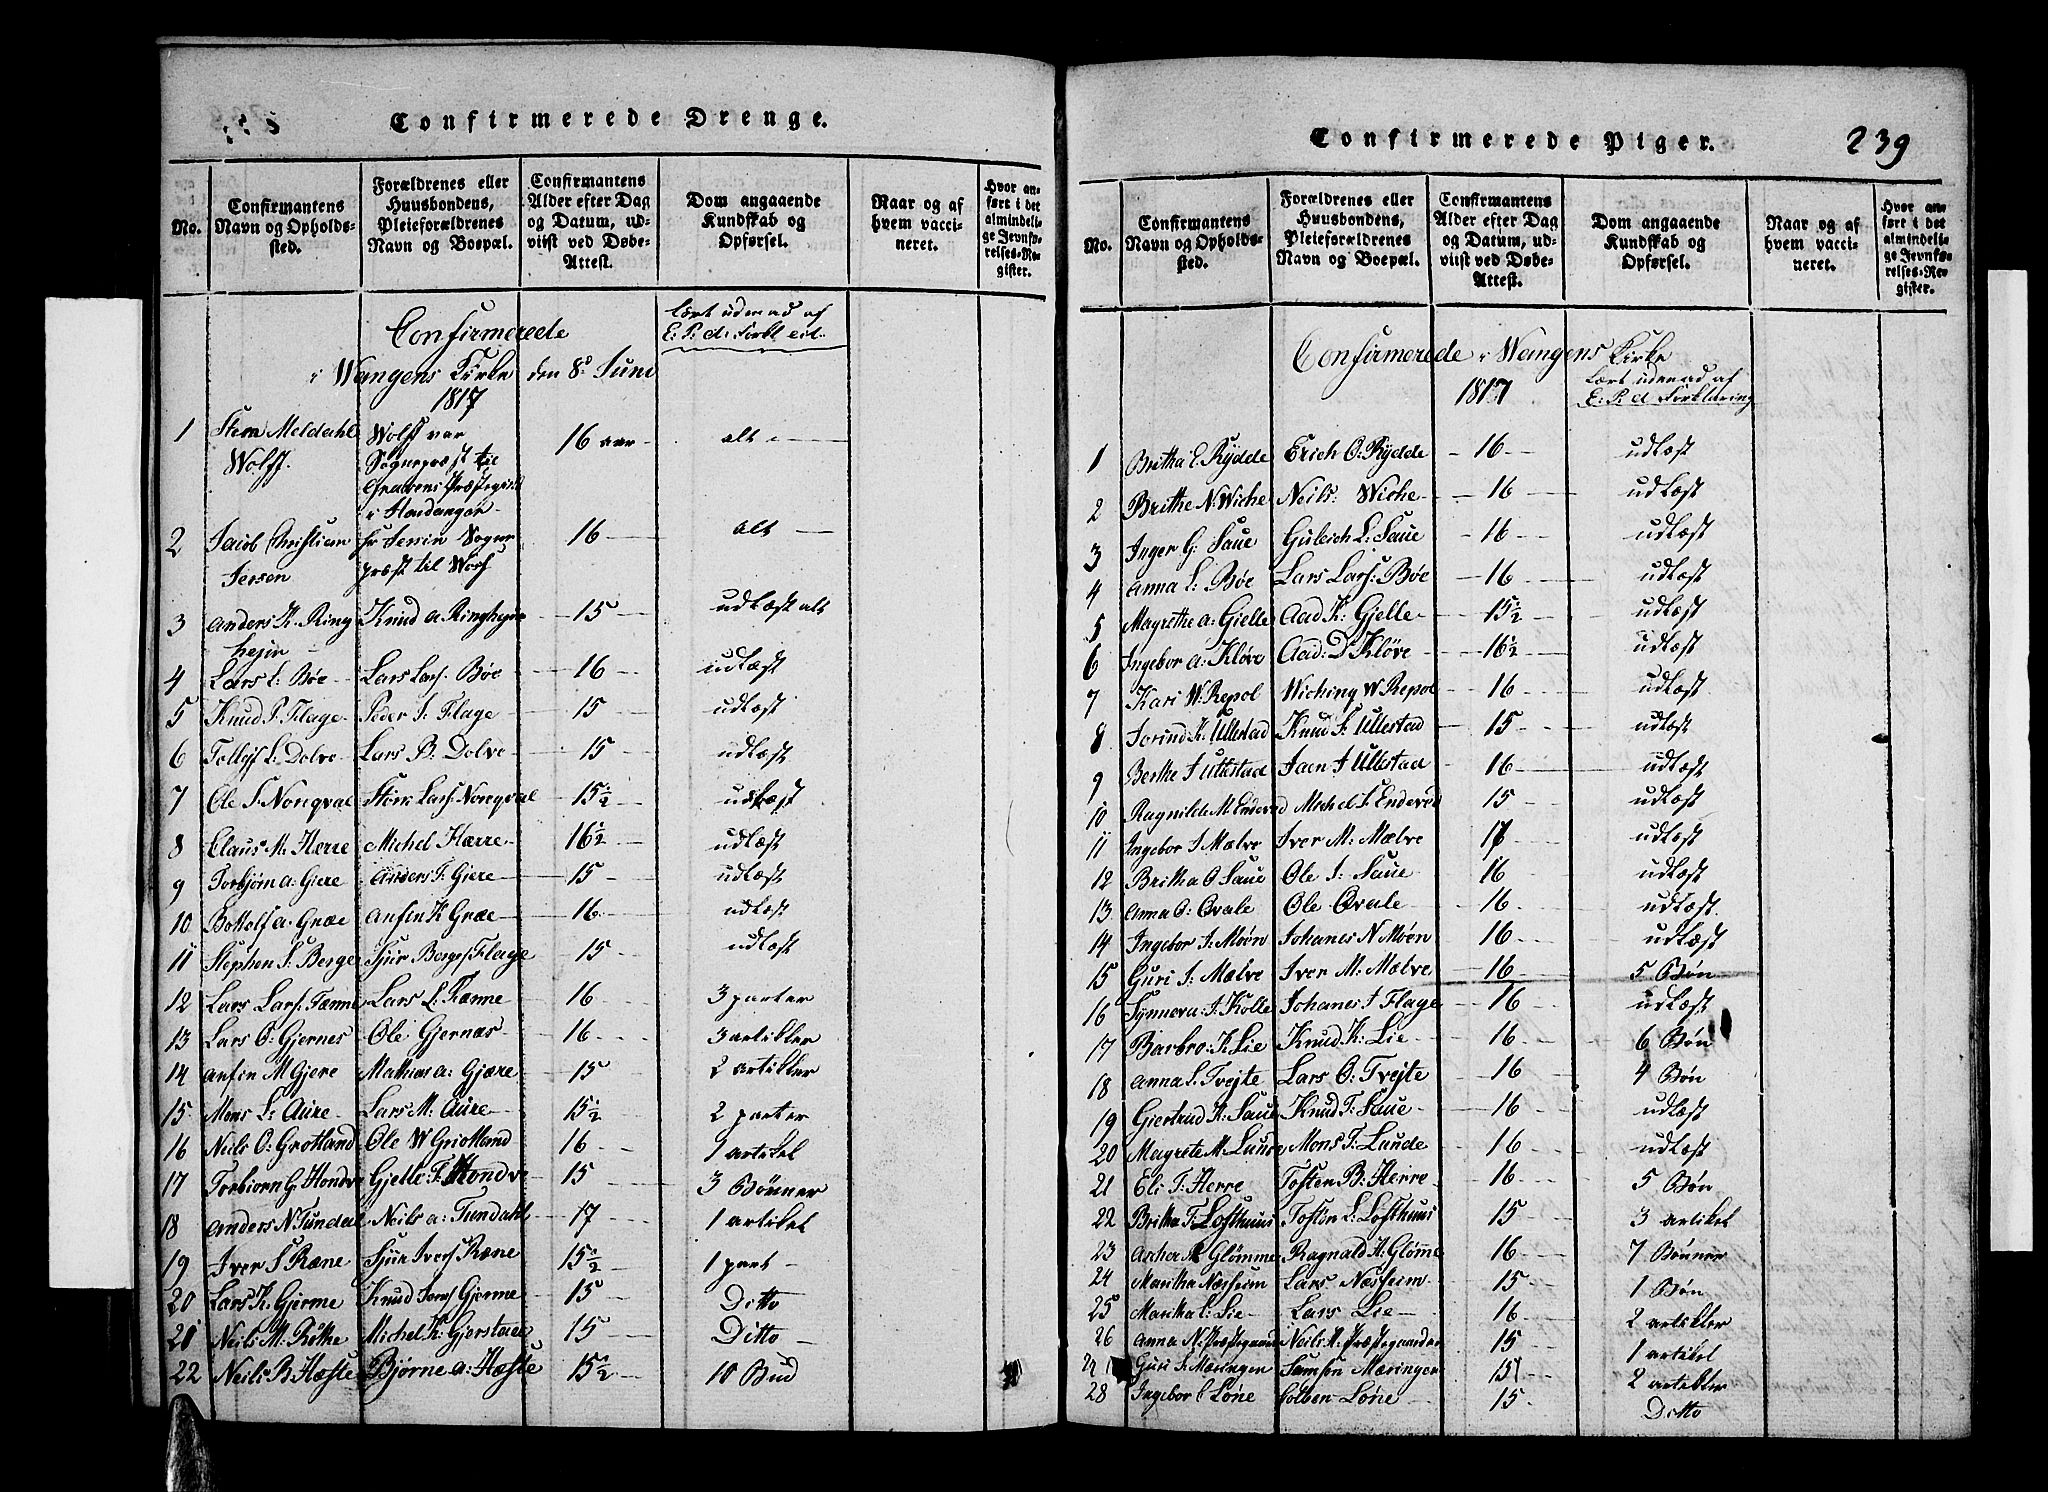 Confirmerede Drenge.
No.
Confirmantens Navn og Opholds-sted.
Forældrenes eller Huusbondens, Pleieforældrenes Navn og Boepæl.
Confirmantens Alder efter Dag og Datum, ud-viist ved Døbe-Attest.
Dom angaaende Kundskab og Opførsel.
Naar og af hvem vacci-neret.
Hvor an-ført i det almindeli-ge Jevnfø-relses-Re-gister.
Confirmerede
lært udenad af
E: P. d: Forkl
i Wangens Kirke den 8de Juni
1817
1 Meldahl Wolff. Wolff var Sognepræst til Præstegield i Hardanger 16 aar alt
2 Jacob Christian Jersen hr Sogne præst til Wors 16 alt
3 Anders K. Ring hejm Knud A Ringhejm 15 udlæst alt
4 Lars L: Bøe Lars Lars: Bøe 16 udlæst
5 Knud P. Flage Peder J. Flage 15 udlæst
6 L: Dolve Lars B. Dolve 15 udlæst
7 Ole S. Nonqval Lars: Nonqval 15 1/2 udlæst
8 Claus M. Herre Michel Hærre 16 1/2 udlæst
9 Torbjørn A: Giere Anders T: Gjere 15 udlæst
10 Bottolf A: Græe Anfin K Græe 16 udlæst
11 Stephen S: Berge Sjur Berges Flage 15 udlæst
12 Lars Lars: Rænne Lars L: Rænne 16 3 parter
13 Lars O: Gjernes Ole Gjernæs 16 3 artikler
14 Anfin M Gjere Mathias A: Gjære 15 2 artikler
15 Mons L: Aure Lars M: Aure 15 1/2 2 parter
16 Neils O: Grotland Ole W Griotland 16 1 artikel
17 Torbiorn G Hondve Gjelle T. Hondve 15 3 Bønner
18 Anders N Tundal Neils A: Tundahl 17 1 artikel
19 Iver S Ræne Sjur Ivers Ræne 15 1/2 1 part
20 Lars K. Gjerme Knud Gjerme 15 Ditto
21 Neils M. Røthe Michel K: Gjerstad 15 Ditto
22 Neils B. Hæste Bjørne A: Hæste 15 1/2 10 Bud
Confirmerede Piger.
239
No.
Confirmantens Navn og Opholds-sted.
Forældrenes eller Huusbondens, Pleieforældrenes Navn og Boepæl.
Confirmantens Alder efter Dag og Datum, ud-viist ved Døbe-Attest.
Dom angaaende Kundskab og Opførsel.
Naar og af hvem vacci-neret.
Hvor an-ført i det almindeli-ge Jevnfø-relses-Re-gister.
Confirmerede i Wangens Kirke
1817
lært udenad af
E: P. d Forklaring
1 Britha E. Rydde Erich O: Rydde 16 udlæst
2 Brithe N. Wiche Neils: Wiche 16 udlæst
3 Inger G: Saue Gulleich L: Saue 16 udlæst
4 Anna L: Bøe Lars Lars: Bøe 16 udlæst
5 Magrethe A: Gjelle Aad K: Gjelle 15 1/2 udlæst
6 Ingebor A: Kløve Aad: D Kløve 16 1/2 udlæst
7 Kari W. Repol Wiching W Repol 16 udlæst
8 Jorind K Ullestad Knud S. Ullestad 15 udlæst
9 Berthe J Ullestad Jaen J Ullestad 16 udlæst
10 Ragnilde M. Endeved Michel S. Endeved 15 udlæst
11 Ingebor J Mælve Iver M: Mælve 17 udlæst
12 Britha O Saue Ole J: Saue 16 udlæst
13 Anna O: Qvale Ole Qvale 16 udlæst
14 Ingebor J. Moøn Johanes N Moøn 16 udlæst
15 Guri J: Mælve Iver M: Mælve 16 5 Bøn
16 Synneva J. Kolle Johanes J Flage 16 udlæst
17 Barbro: K Lie Knud K: Lie 16 6 Bøn
18 Anna L: Tvejte Lars O: Tvejte 16 4 Bøn
19 Giertrud K: Saue Knud T: Saue 16 udlæst
20 Magrete M: Lunde Mons T: Lunde 16 udlæst
21 Eli T: Herre Tosten B: Herre 16 5 Bøn
22 Britha T. Lofthuus Tosten L: Lofthuus 15 3 artikel
23 R Glømme Ragnald A: Glømme 16 7 Bønner
24 Maritha Næsheim Lars Næsheim 15 1 Bøn
25 Maritha L: Lie Lars Lie 16 2 artikler
26 Anna N. Præstegaard Neils A: Præstegaarden 15 1 artikel
27 Guri S. Mæringen Samson Mæringen 15 2 artikler
28 Ingebor C Løne Colben Løne 15 Ditto